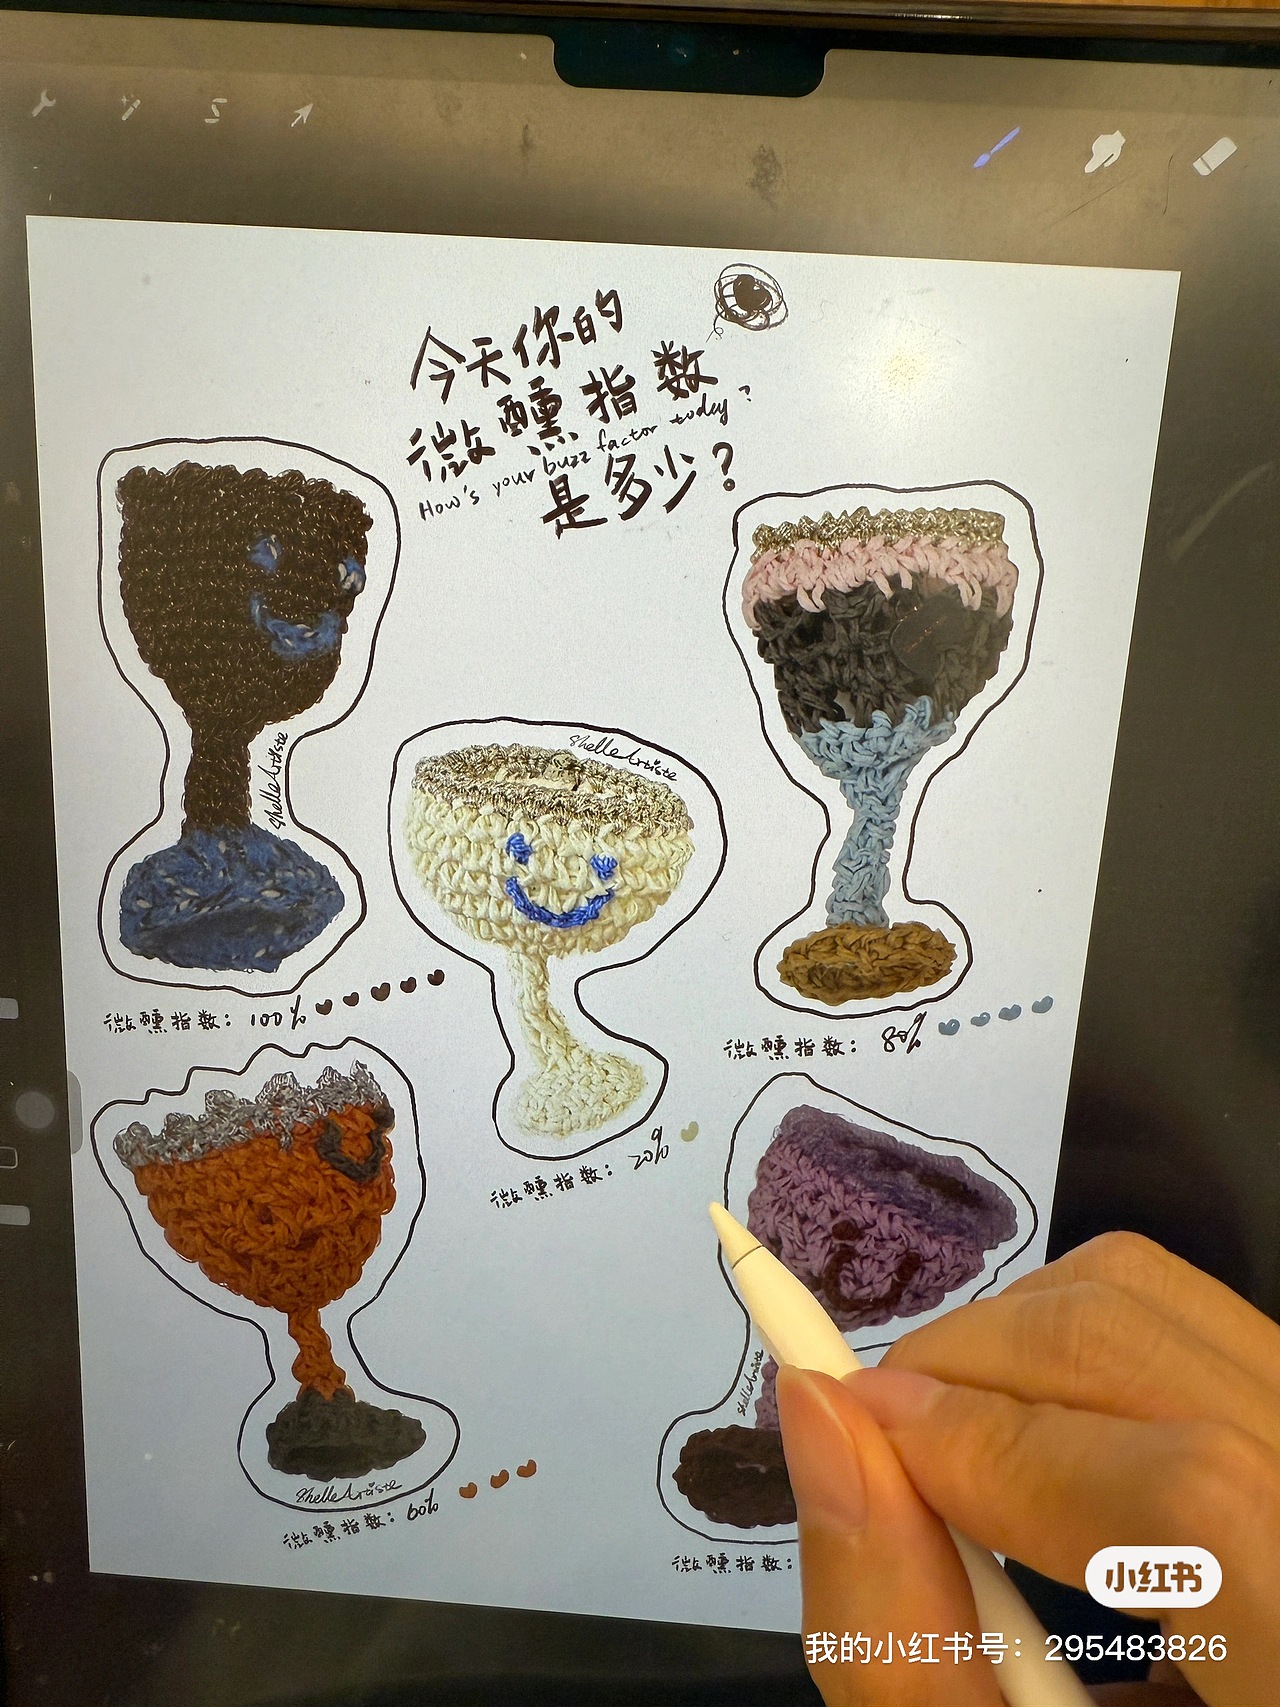 今天你的
微醺指数
How's your buzz factor today?
是多少？
shelleArtiste
微醺指数：100%
shelleArtiste
微醺指数：80%
微醺指数：20%
shelleArtiste
微醺指数：60%
shelleArtiste
微醺指数：
小红书
我的小红书号：295483826